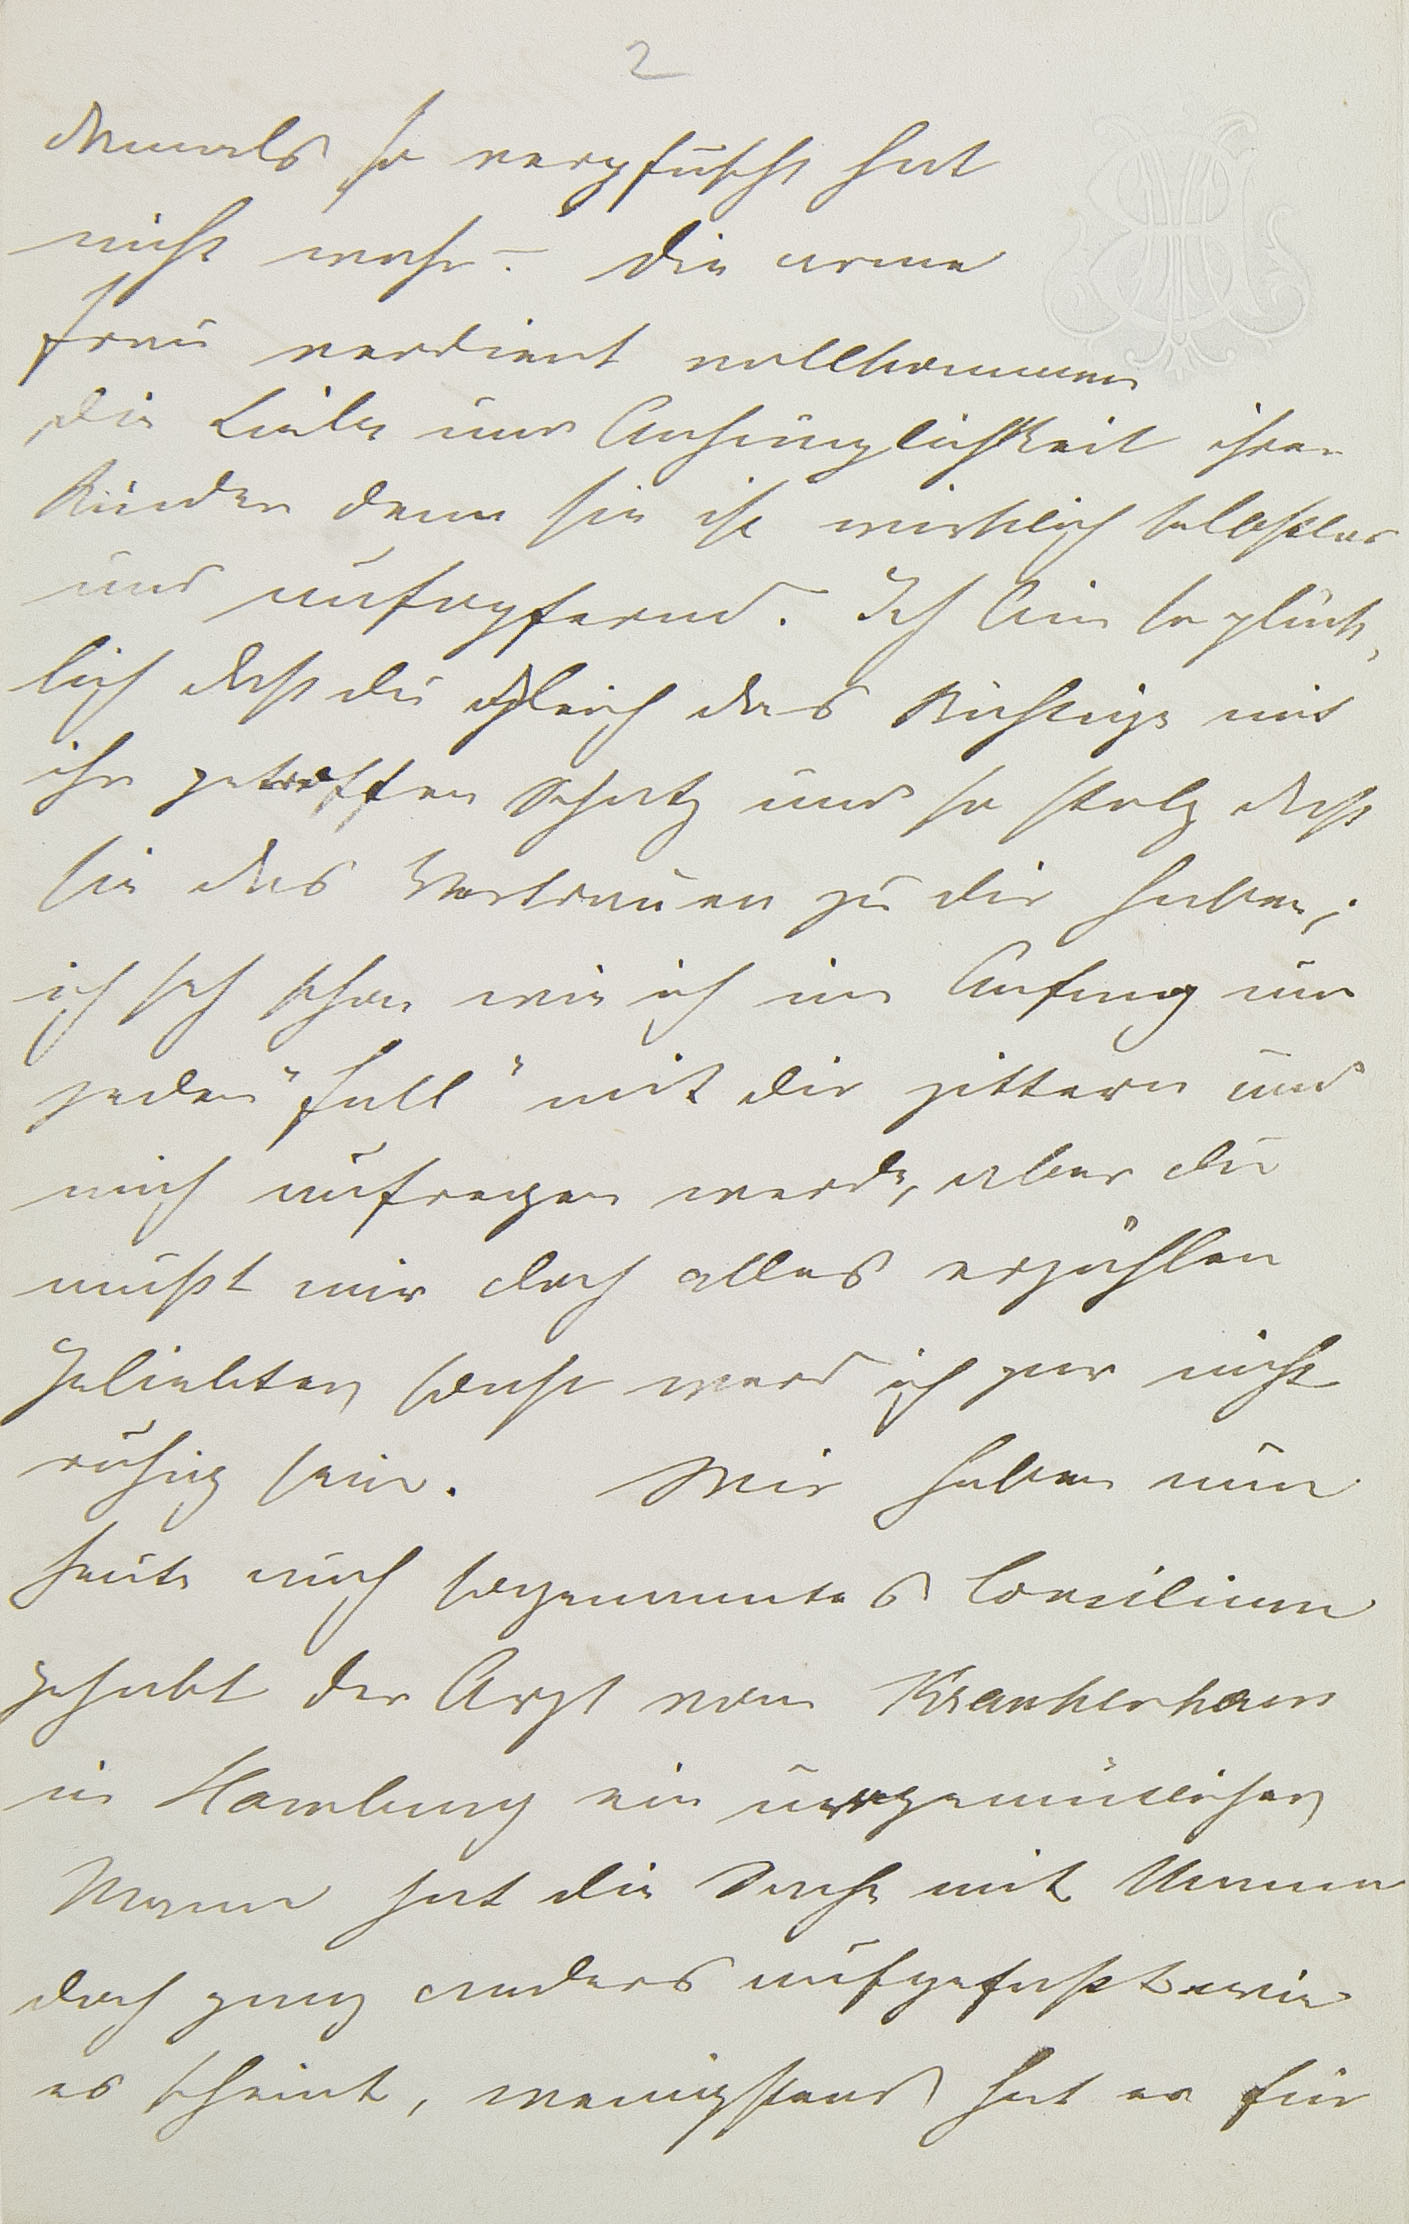 2
damals so verpfuscht hat
nicht wahr – die arme
Frau verdient vollkommen
die Liebe und Anhänglichkeit ihrer
Kinder denn sie ist wirklich selbstlos
und aufopfernd. Ich bin so glück,
lich daß du gleich das Richtige mit
ihr getroffen Schatz und so stolz daß
sie das Vertrauen zu dir haben;
ich seh schon wie ich im Anfang um
jeden "Fall" mit dir zittern und
mich aufregen werde, aber du
mußt mir doch alles erzählen
Geliebter, sonst werd ich gar nicht
ruhig sein. Wir haben nun
heute auch sogenanntes Consilium
gehabt der Arzt vom Krankenhaus
in Hamburg ein urgemütlicher
Mann hat die Sache mit Mama
doch ganz anders aufgefaßt wie
es scheint, wenigstens hat er für